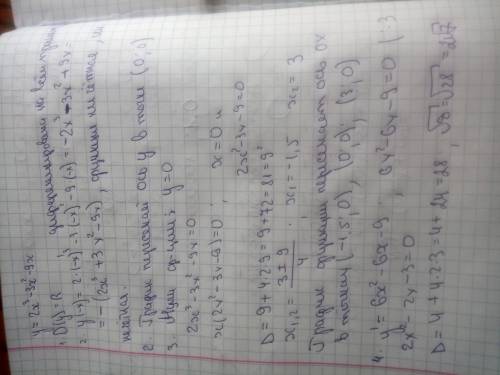 y=2x³-3x²-9x
1. D(y)=R дифференцирована на всей прямой
2. y(-x)=2·(-x)³-3(-x)²-9(-x)=-2x³-3x²+9x=
=-(2x³+3x²-9x), функция ни чётная, ни
нечётная.
2. График пересекай ось y в точке (0;0)
3. Нули ф-ции: y=0
2x³-3x²-9x=0
x(2x²-3x-9)=0; x=0 и
2x²-3x-9=0
D=9+4·2·9=9+72=81=9²
x₁,₂=3±9/4; x₁=-1,5 x₂=3
График функции пересекает ось ox
в точках (-1,5;0), (0;0); (3;0)
4. y'=6x²-6x-9, 6x²-6x-9=0 (:3
2x²-2x-3=0
D=4+4·2·3=4+24=28, √D=√28=2√7